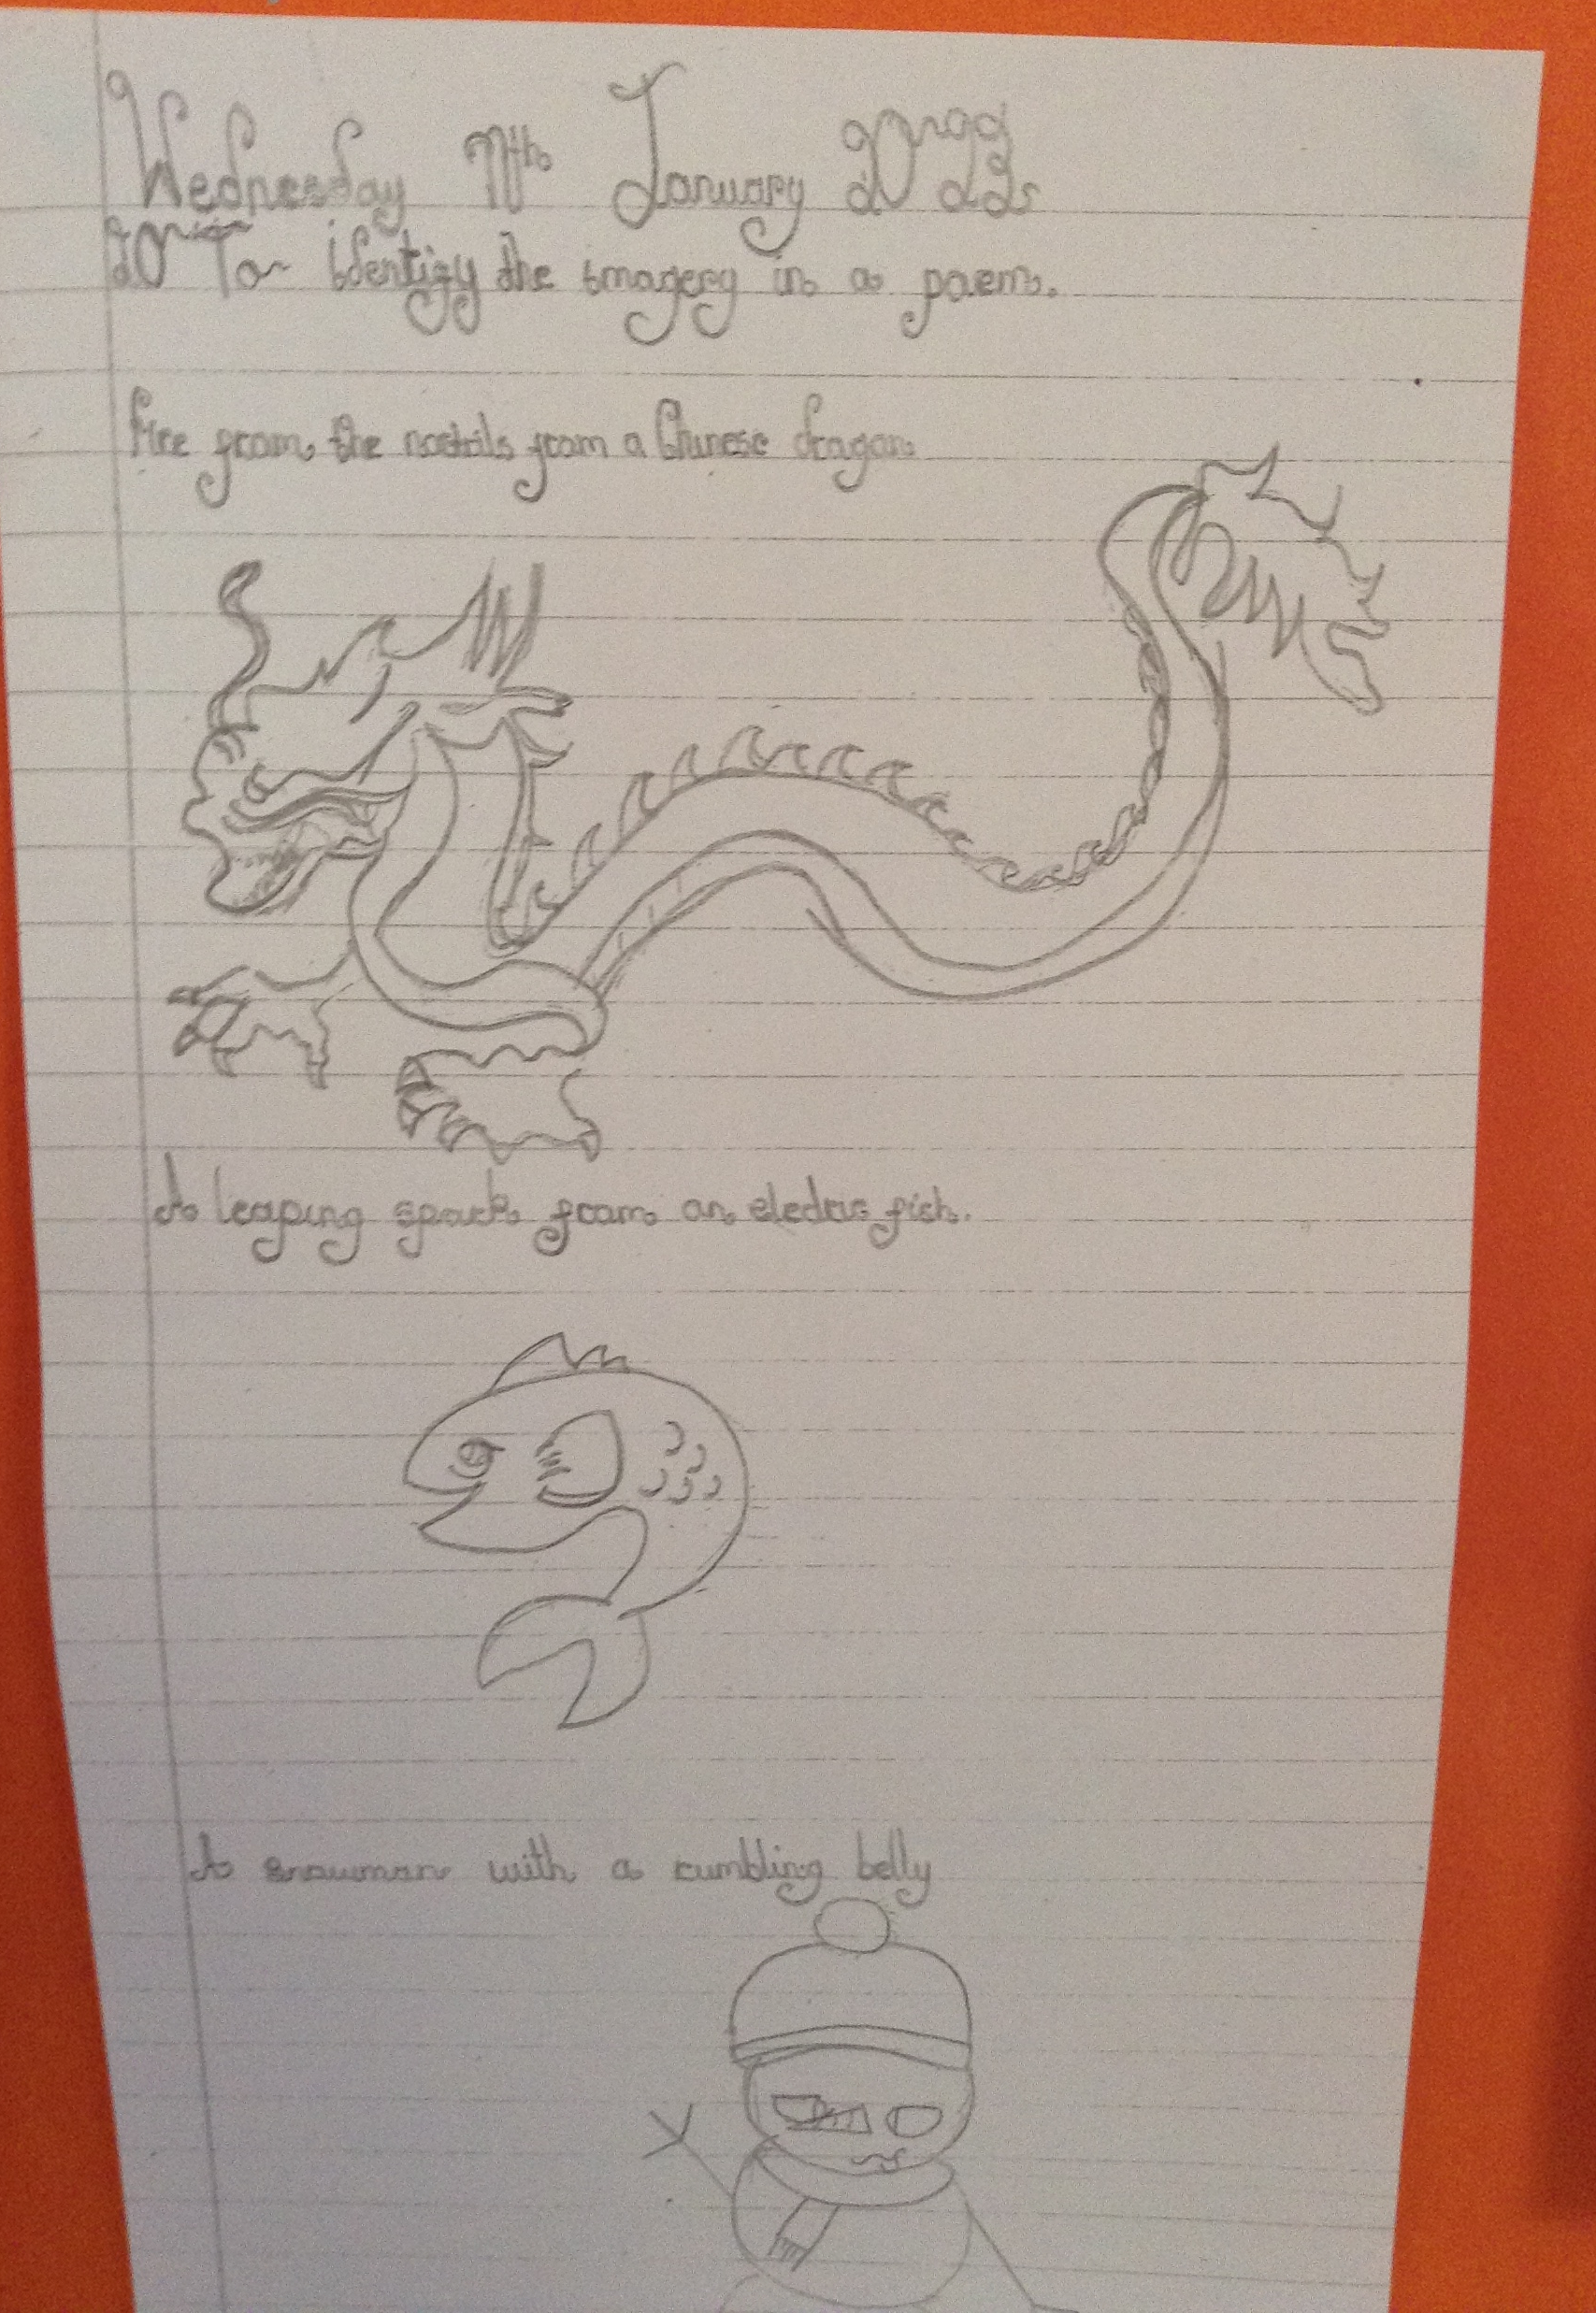 Wednesday 11th January 2023
LO To identify the imagery in a poem.
Fire from the nostrils from a Chinese dragon
A leaping spark from an electric fish.
A snowman with a rumbling belly